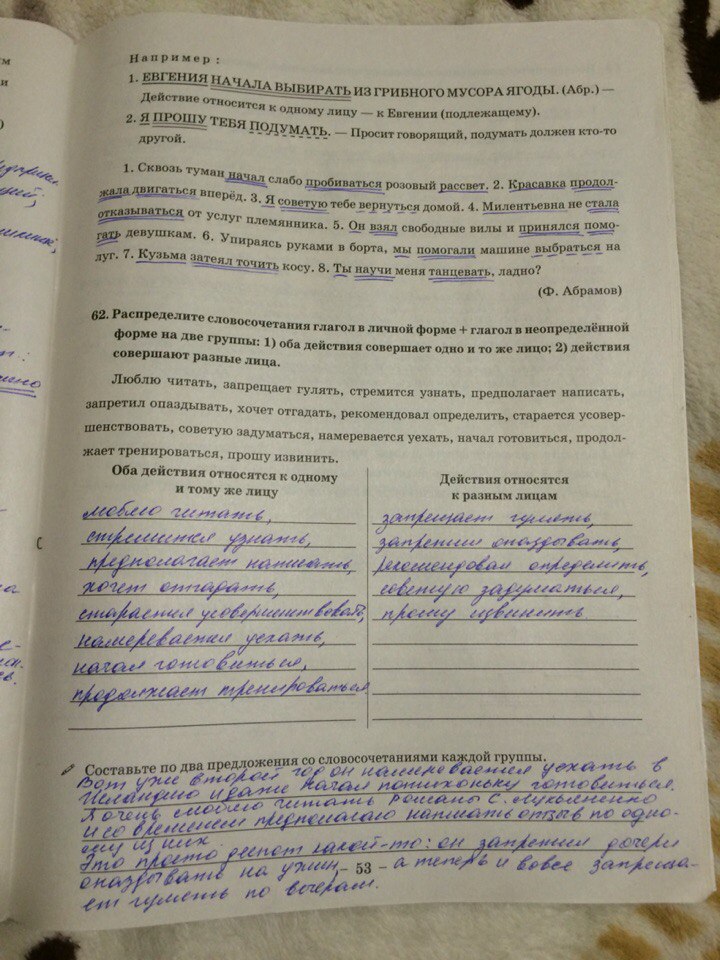 Например:
1. ЕВГЕНИЯ НАЧАЛА ВЫБИРАТЬ ИЗ ГРИБНОГО МУСОРА ЯГОДЫ. (Абр.) —
Действие относится к одному лицу — к Евгении (подлежащему).
2. Я ПРОШУ ТЕБЯ ПОДУМАТЬ. — Просит говорящий, подумать должен кто-то
другой.
1. Сквозь туман начал слабо пробиваться розовый рассвет. 2. Красавка продол-
жала двигаться вперёд. 3. Я советую тебе вернуться домой. 4. Милентьевна не стала
отказываться от услуг племянника. 5. Он взял свободные вилы и принялся помо-
гать девушкам. 6. Упираясь руками в борта, мы помогали машине выбраться на
луг. 7. Кузьма затеял точить косу. 8. Ты научи меня танцевать, ладно?
(Ф. Абрамов)
62. Распределите словосочетания глагол в личной форме + глагол в неопределённой
форме на две группы: 1) оба действия совершает одно и то же лицо; 2) действия
совершают разные лица.
Люблю читать, запрещает гулять, стремится узнать, предполагает написать,
запретил опаздывать, хочет отгадать, рекомендовал определить, старается усовер-
шенствовать, советую задуматься, намеревается уехать, начал готовиться, продол-
жает тренироваться, прошу извинить.
Оба действия относятся к одному
и тому же лицу
люблю читать,
стремится узнать,
предполагает написать,
хочет отгадать,
старается усовершенствовать,
намеревается уехать,
начал готовиться,
продолжает тренироваться
Действия относятся
к разным лицам
запрещает гулять,
запретил опаздывать,
рекомендовал определить,
советую задуматься,
прошу извинить
Составьте по два предложения со словосочетаниями каждой группы.
Вот уже второй год он намеревается уехать в
Исландию и даже начал потихоньку готовиться.
Я очень люблю читать романы С. Лукьяненко
и со временем предполагаю написать отзыв по одно-
му из них.
Это просто деспот какой-то: он запретил дочери
опаздывать на ужин, а теперь и вовсе запреща-
ет гулять по вечерам.
— 53 —